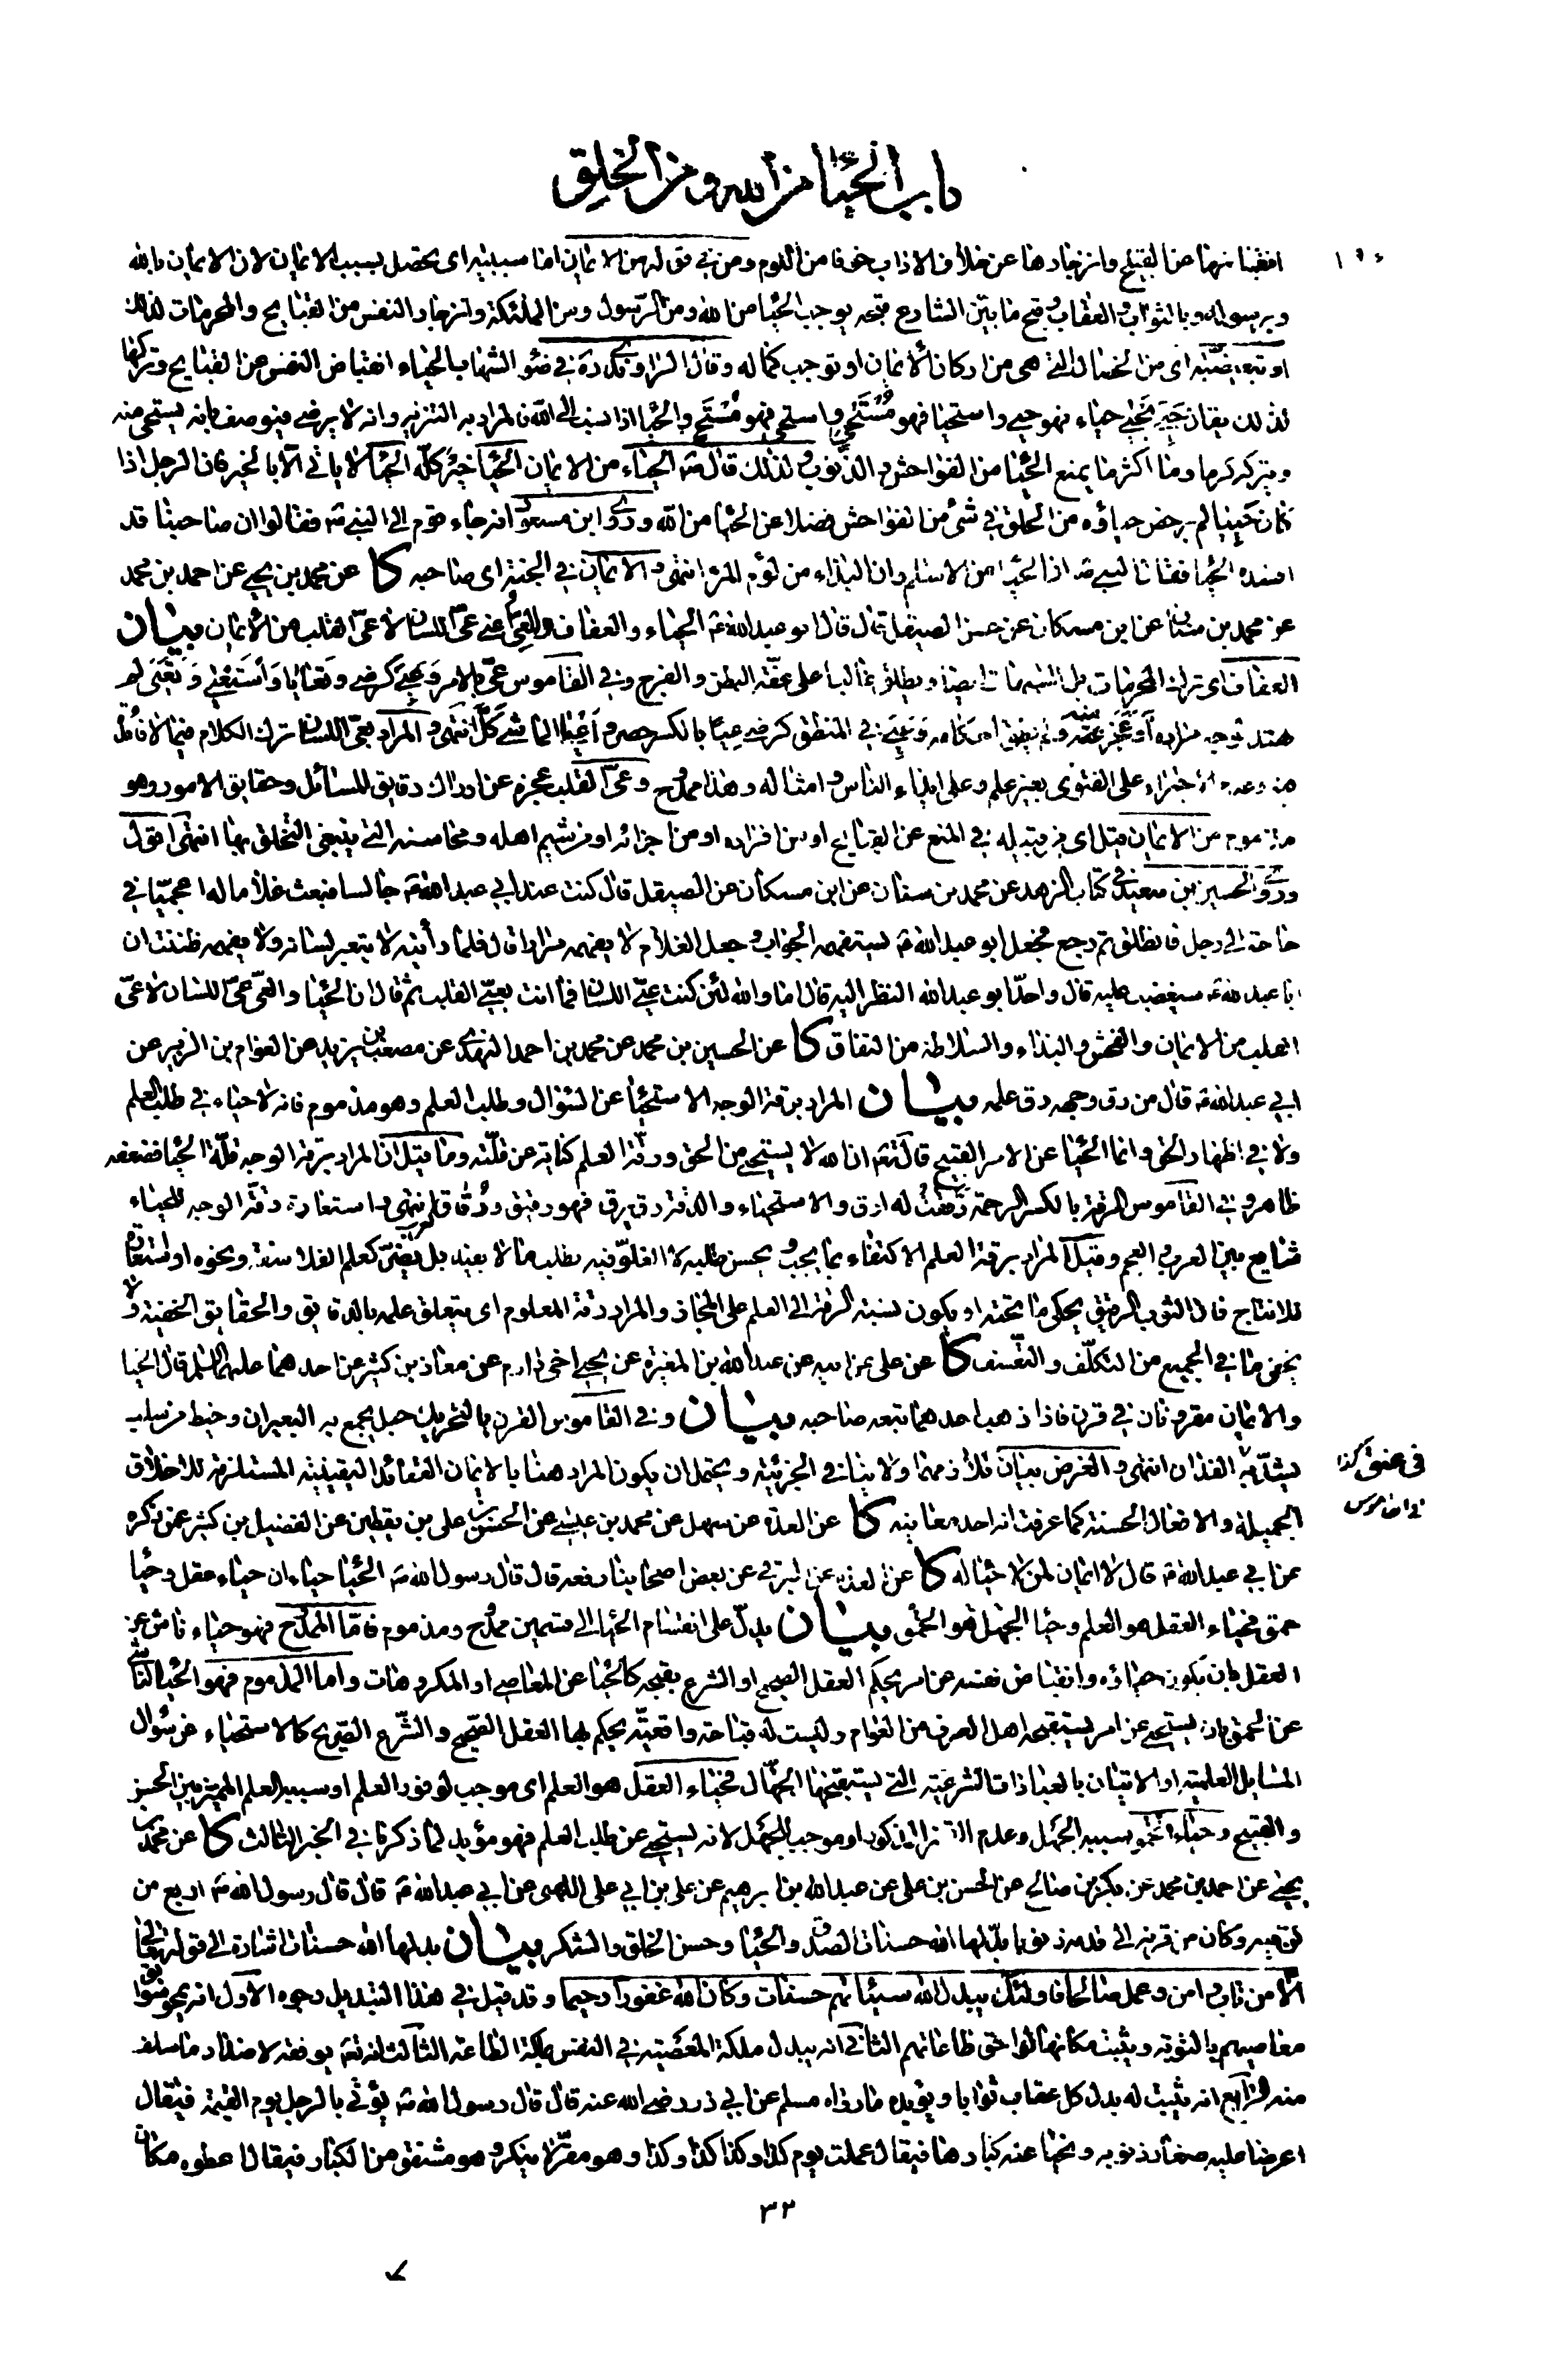 باب الحياء من الله ومن الخلق
انقباضها عن القبيح وانزجارها عن خلاف الاداب خوفا من اللوم ومن في قوله من الايمان اما سببية اى يحصل بسبب الايمان لان الايمان بالله
وبرسوله وبالثواب والعقاب وقبح ما بين الشارع قبحه يوجب الحيا من الله ومن الرسول ومن الملئكة وانزجار النفس من القبايح والمحرمات لذلك
او تبعيضية اى من الخصال التى هى من اركان الايمان او توجب كماله وقال الراوندى ره في ضوء الشهاب الحياء انقباض النفس عن القبايح وتركها
لذلك يقال حيى يحيى حياء فهو حيى واستحيا فهو مستحيى واستحى فهو مستح والحيا اذا نسب الى الله فالمراد به التنزيه وانه لا يرضى فيوصف بانه يستحى منه
ويتركه كرما وما اكثر ما يمنع الحيا من الفواحش والذنوب ولذلك قال ص الحياء من الايمان الحيا خير كله الحيا لا ياتى الا بالخير فان الرجل اذا
كان حييا لم يرخص حياؤه من الخلق في شىء من الفواحش فضلا عن الحيا من الله وروى ابن مسعود انه جاء قوم الى النبى ص فقالوا ان صاحبنا قد
افسده الحيا فقال النبى ص ان الحيا من الاسلام وان البذاء من لؤم المرء انتهى والايمان في الجنة اى صاحبه كا عن محمد بن يحيى عن احمد بن محمد
عن محمد بن سنان عن ابن مسكان عن حسن الصيقل قال قال ابو عبد الله ع الحياء والعفاف والعى اعنى عى اللسان لا عى القلب من الايمان بيان
العفاف اى ترك المحرمات بل الشبهات ايضا ويطلق غالبا على عفة البطن والفرج وفي القاموس عى بالامر وعيى كرضى وتعايا واستعيى وتعيى لم
يهتد لوجه مراده او عجز عنه ولم يطق احكامه وعيى في المنطق كرضى عيا بالكسر حصر واعيا الماشى كل انتهى والمراد بعى اللسان ترك الكلام فيما لا فائدة
فيه وعدم الاجتراء على الفتوى بغير علم وعلى ايذاء الناس وامثاله وهذا ممدوح وعى القلب عجزه عن ادراك دقايق المسائل وحقايق الامور وهو
مذموم من الايمان قيل اى من قبيله في المنع عن القبايح او من افراده او من اجزائه او من شيم اهله ومحاسنه التى ينبغى التخلق بها انتهى اقول
وروى الحسين بن سعيد في كتاب الزهد عن محمد بن سنان عن ابن مسكان عن الصيقل قال كنت عند ابي عبد الله ع جالسا فبعث غلاما له اعجميا في
حاجة الى رجل فانطلق ثم رجع فجعل ابو عبد الله ع يستفهمه الجواب وجعل الغلام لا يفهمه مرارا قال فلما رأيته لا يتعبر لسانه ولا يفهمه ظننت ان
ابا عبد الله ع سيغضب عليه قال واحد ابو عبد الله النظر اليه قال اما والله لئن كنت عيى اللسان فما انت بعيى القلب ثم قال ان الحيا والعى عى اللسان لا عى
القلب من الايمان والفحش والبذاء والسلاطة من النفاق كا عن الحسين بن محمد عن محمد بن احمد النهدى عن مصعب بن يزيد عن العوام بن الزبير عن
ابي عبد الله ع قال من رق وجهه رق علمه بيان المراد برقة الوجه الاستحيا عن السؤال وطلب العلم وهو مذموم فانه لا حياء في طلب العلم
ولا في اظهار الحق وانما الحيا عن الامر القبيح قال تعه ان الله لا يستحيى من الحق ورقة العلم كناية عن قلته وما قيل ان المراد برقة الوجه قلة الحيا فضعفه
ظاهر وفي القاموس الرقة بالكسر الرحمة رققت له ارق والاستحياء والدقة رق يرق فهو رقيق ورقاق انتهى واستعارة رقة الوجه للحياء
شايع بين العرب والعجم وقيل المراد برقة العلم الاكتفاء بما يجب ويحسن طلبه لا الغلو فيه بطلب ما لا يفيد بل يضر كعلم الفلاسفة ونحوه او استعارة
للانتاج فان الثوب الرقيق يحكى ما تحته او يكون نسبة الرقة الى العلم على المجاز والمراد رقة المعلوم اى يتعلق علمه بالدقايق والحقايق الخفية ولا
يخفى ما في الجميع من التكلف والتعسف كا عن على عن ابيه عن عبد الله بن المغيرة عن يحيى اخى دارم عن معاذ بن كثير عن احدهما عليهما السلم قال الحيا
والايمان مقرونان في قرن فاذا ذهب احدهما تبعه صاحبه بيان وفي القاموس القرن بالتحريك حبل يجمع به البعيران وخيط من سلب
يشد به الفدان انتهى والغرض بيان تلازمهما ولا ينافي الجزئية ويحتمل ان يكون المراد هنا بالايمان العقائد اليقينية المستلزمة للاخلاق
في عنق كذا
في القاموس
الجميلة والافعال الحسنة كما عرفت انه احد معانيه كا عن العدة عن سهل عن محمد بن عيسى عن الحسن بن على بن يقطين عن الفضيل بن كثير عمن ذكره
عن ابي عبد الله ع قال لا ايمان لمن لا حيا له كا عن العدة عن البرقى عن بعض اصحابنا رفعه قال قال رسول الله ص الحيا حياءان حياء عقل وحيا
حمق فحياء العقل هو العلم وحيا الجهل هو الحمق بيان يدل على انقسام الحيا الى قسمين ممدوح ومذموم فاما الممدوح فهو حياء ناش عن
العقل بان يكون حياؤه وانقباض نفسه عن امر يحكم العقل الصحيح او الشرع بقبحه كالحيا عن المعاصى او المكروهات واما المذموم فهو الحيا الناشى
عن الحمق بان يستحيى عن امر يستقبحه اهل العرف من العوام وليست له قباحة واقعية يحكم بها العقل الصحيح والشرع الصريح كالاستحياء عن سؤال
المسايل العلمية او الاتيان بالعبادات الشرعية التى يستقبحها الجهال فحياء العقل هو العلم اى موجب لوفور العلم او سببه العلم المميز بين الحسن
والقبيح وحياء الحمق سببه الجهل وعدم التميز المذكور او موجب للجهل لانه يستحيى عن طلب العلم فهو مؤيد لما ذكرنا في الخبر الثالث كا عن محمد بن
يحيى عن احمد بن محمد عن بكر بن صالح عن الحسن بن على عن عبد الله بن ابرهيم عن على بن ابي على اللهبى عن ابي عبد الله ع قال قال رسول الله ص اربع من
كن فيه وكان من قرنه الى قدمه ذنوبا بدلها الله حسنات الصدق والحيا وحسن الخلق والشكر بيان بدلها الله حسنات اشارة الى قوله تعالى
الا من تاب وامن وعمل صالحا فاولئك يبدل الله سيئاتهم حسنات وكان الله غفورا رحيما وقد قيل في هذا التبديل وجوه الاول انه يمحو سوابق
معاصيهم بالتوبة ويثبت مكانها لواحق طاعاتهم الثانى انه يبدل ملكة المعصية في النفس بملكة الطاعة الثالث انه تعه يوفقه لاضداد ما سلف
منه الرابع انه يثبت له بدل كل عقاب ثوابا ويؤيده ما رواه مسلم عن ابي ذر رضى الله عنه قال قال رسول الله ص يؤتى بالرجل يوم القيمة فيقال
اعرضوا عليه صغار ذنوبه ونحيا عنه كبارها فيقال عملت يوم كذا وكذا كذا وكذا وهو مقر لا ينكر وهو مشفق من الكبار فيقال اعطوه مكان
٣٢